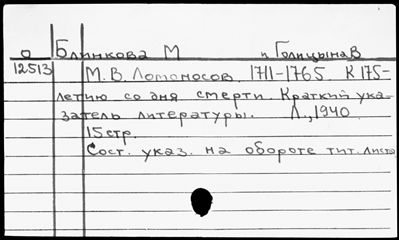 О Блинкова М и Голицына В
12513 М. В. Ломоносов. 1711-1765. К 175-
летию со дня смерти. Краткий ука-
затель литературы. Л., 1940.
15 стр.
Сост. указ. на обороте тит. листа